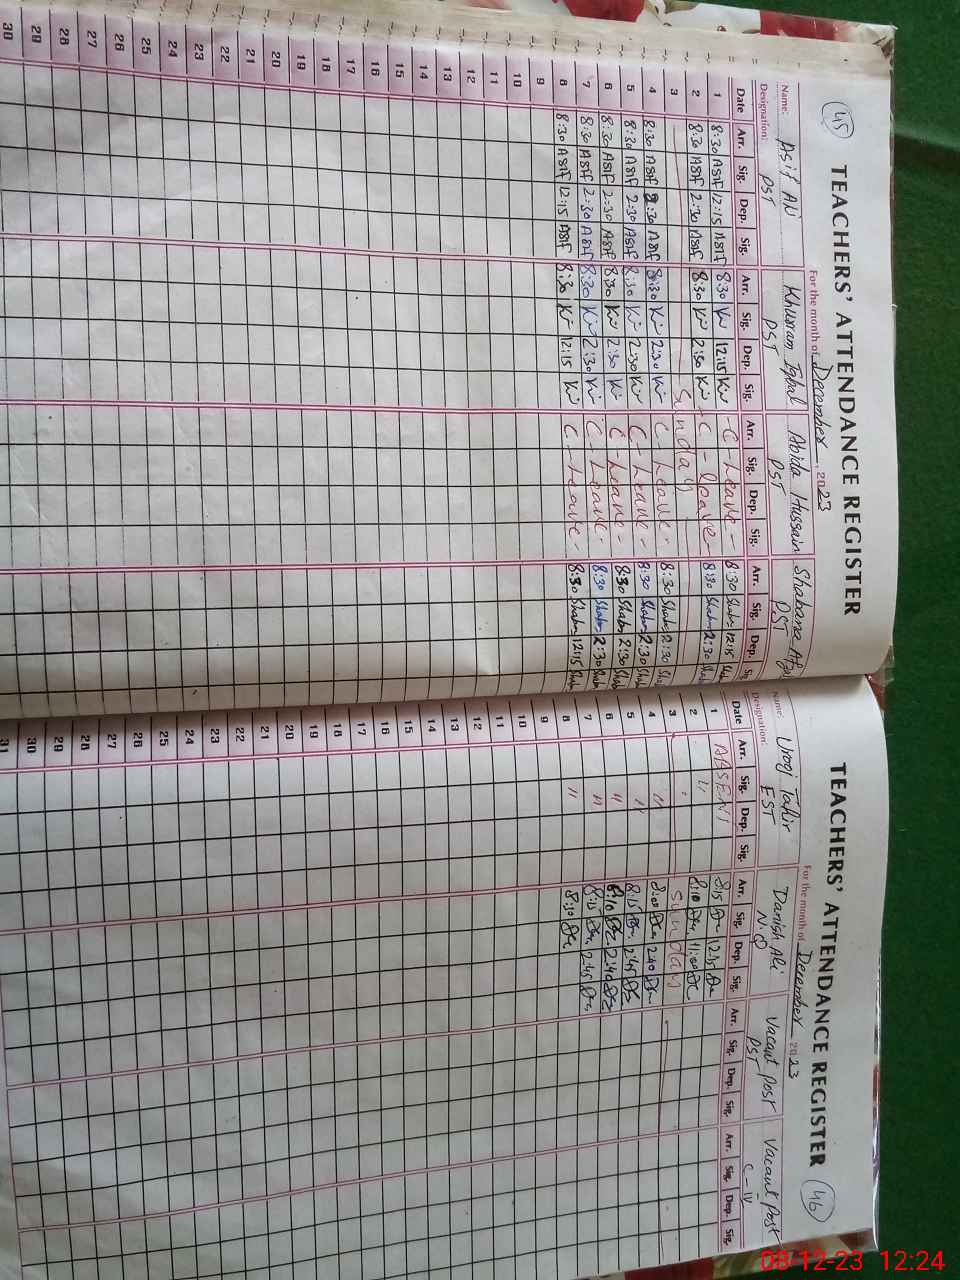 45
TEACHERS' ATTENDANCE REGISTER
For the month of December, 2023
Name: Asif Ali Khurram Iqbal Abida Hussain Shabana
Designation: PST PST PST PST
Date Arr. Sig. Dep. Sig. Arr. Sig. Dep. Sig. Arr. Sig. Dep. Sig. Arr. Sig. Dep. Sig.
1 8:30 ASIF 12:15 ASIF 8:30 12:15 - C - Leave - 8:30 Shabn 12:15
2 8:30 ASIF 2:30 ASIF 8:30 2:30 - C - Leave - 8:30 Shabn 2:30
3 Sunday
4 8:30 ASIF 2:30 ASIF 8:30 2:30 C - Leave - 8:30 Shabn 2:30
5 8:30 ASIF 2:30 ASIF 8:30 2:30 C - Leave - 8:30 Shabn 2:30
6 8:30 ASIF 2:30 ASIF 8:30 2:30 C - Leave - 8:30 Shabn 2:30
7 8:30 ASIF 2:30 ASIF 8:30 2:30 C - Leave - 8:30 Shabn 2:30
8 8:30 ASIF 12:15 ASIF 8:30 12:15 C - Leave - 8:30 Shabn 12:15
9
10
11
12
13
14
15
16
17
18
19
20
21
22
23
24
25
26
27
28
29
30
46
TEACHERS' ATTENDANCE REGISTER
For the month of December 2023
Name: Urooj Tahir Danish Ali Vacant Post Vacant Post
Designation: EST N.Q PST C-IV
Date Arr. Sig. Dep. Sig. Arr. Sig. Dep. Sig. Arr. Sig. Dep. Sig. Arr. Sig. Dep. Sig.
1 ABSENT 8:15 12:15
2 " 8:10 11:00
3 Sunday
4 " 8:00 2:40
5 " 8:15 2:45
6 " 8:10 2:40
7 " 8:15 2:45
8 " 8:10
9
10
11
12
13
14
15
16
17
18
19
20
21
22
23
24
25
26
27
28
29
30
31
08-12-23 12:24